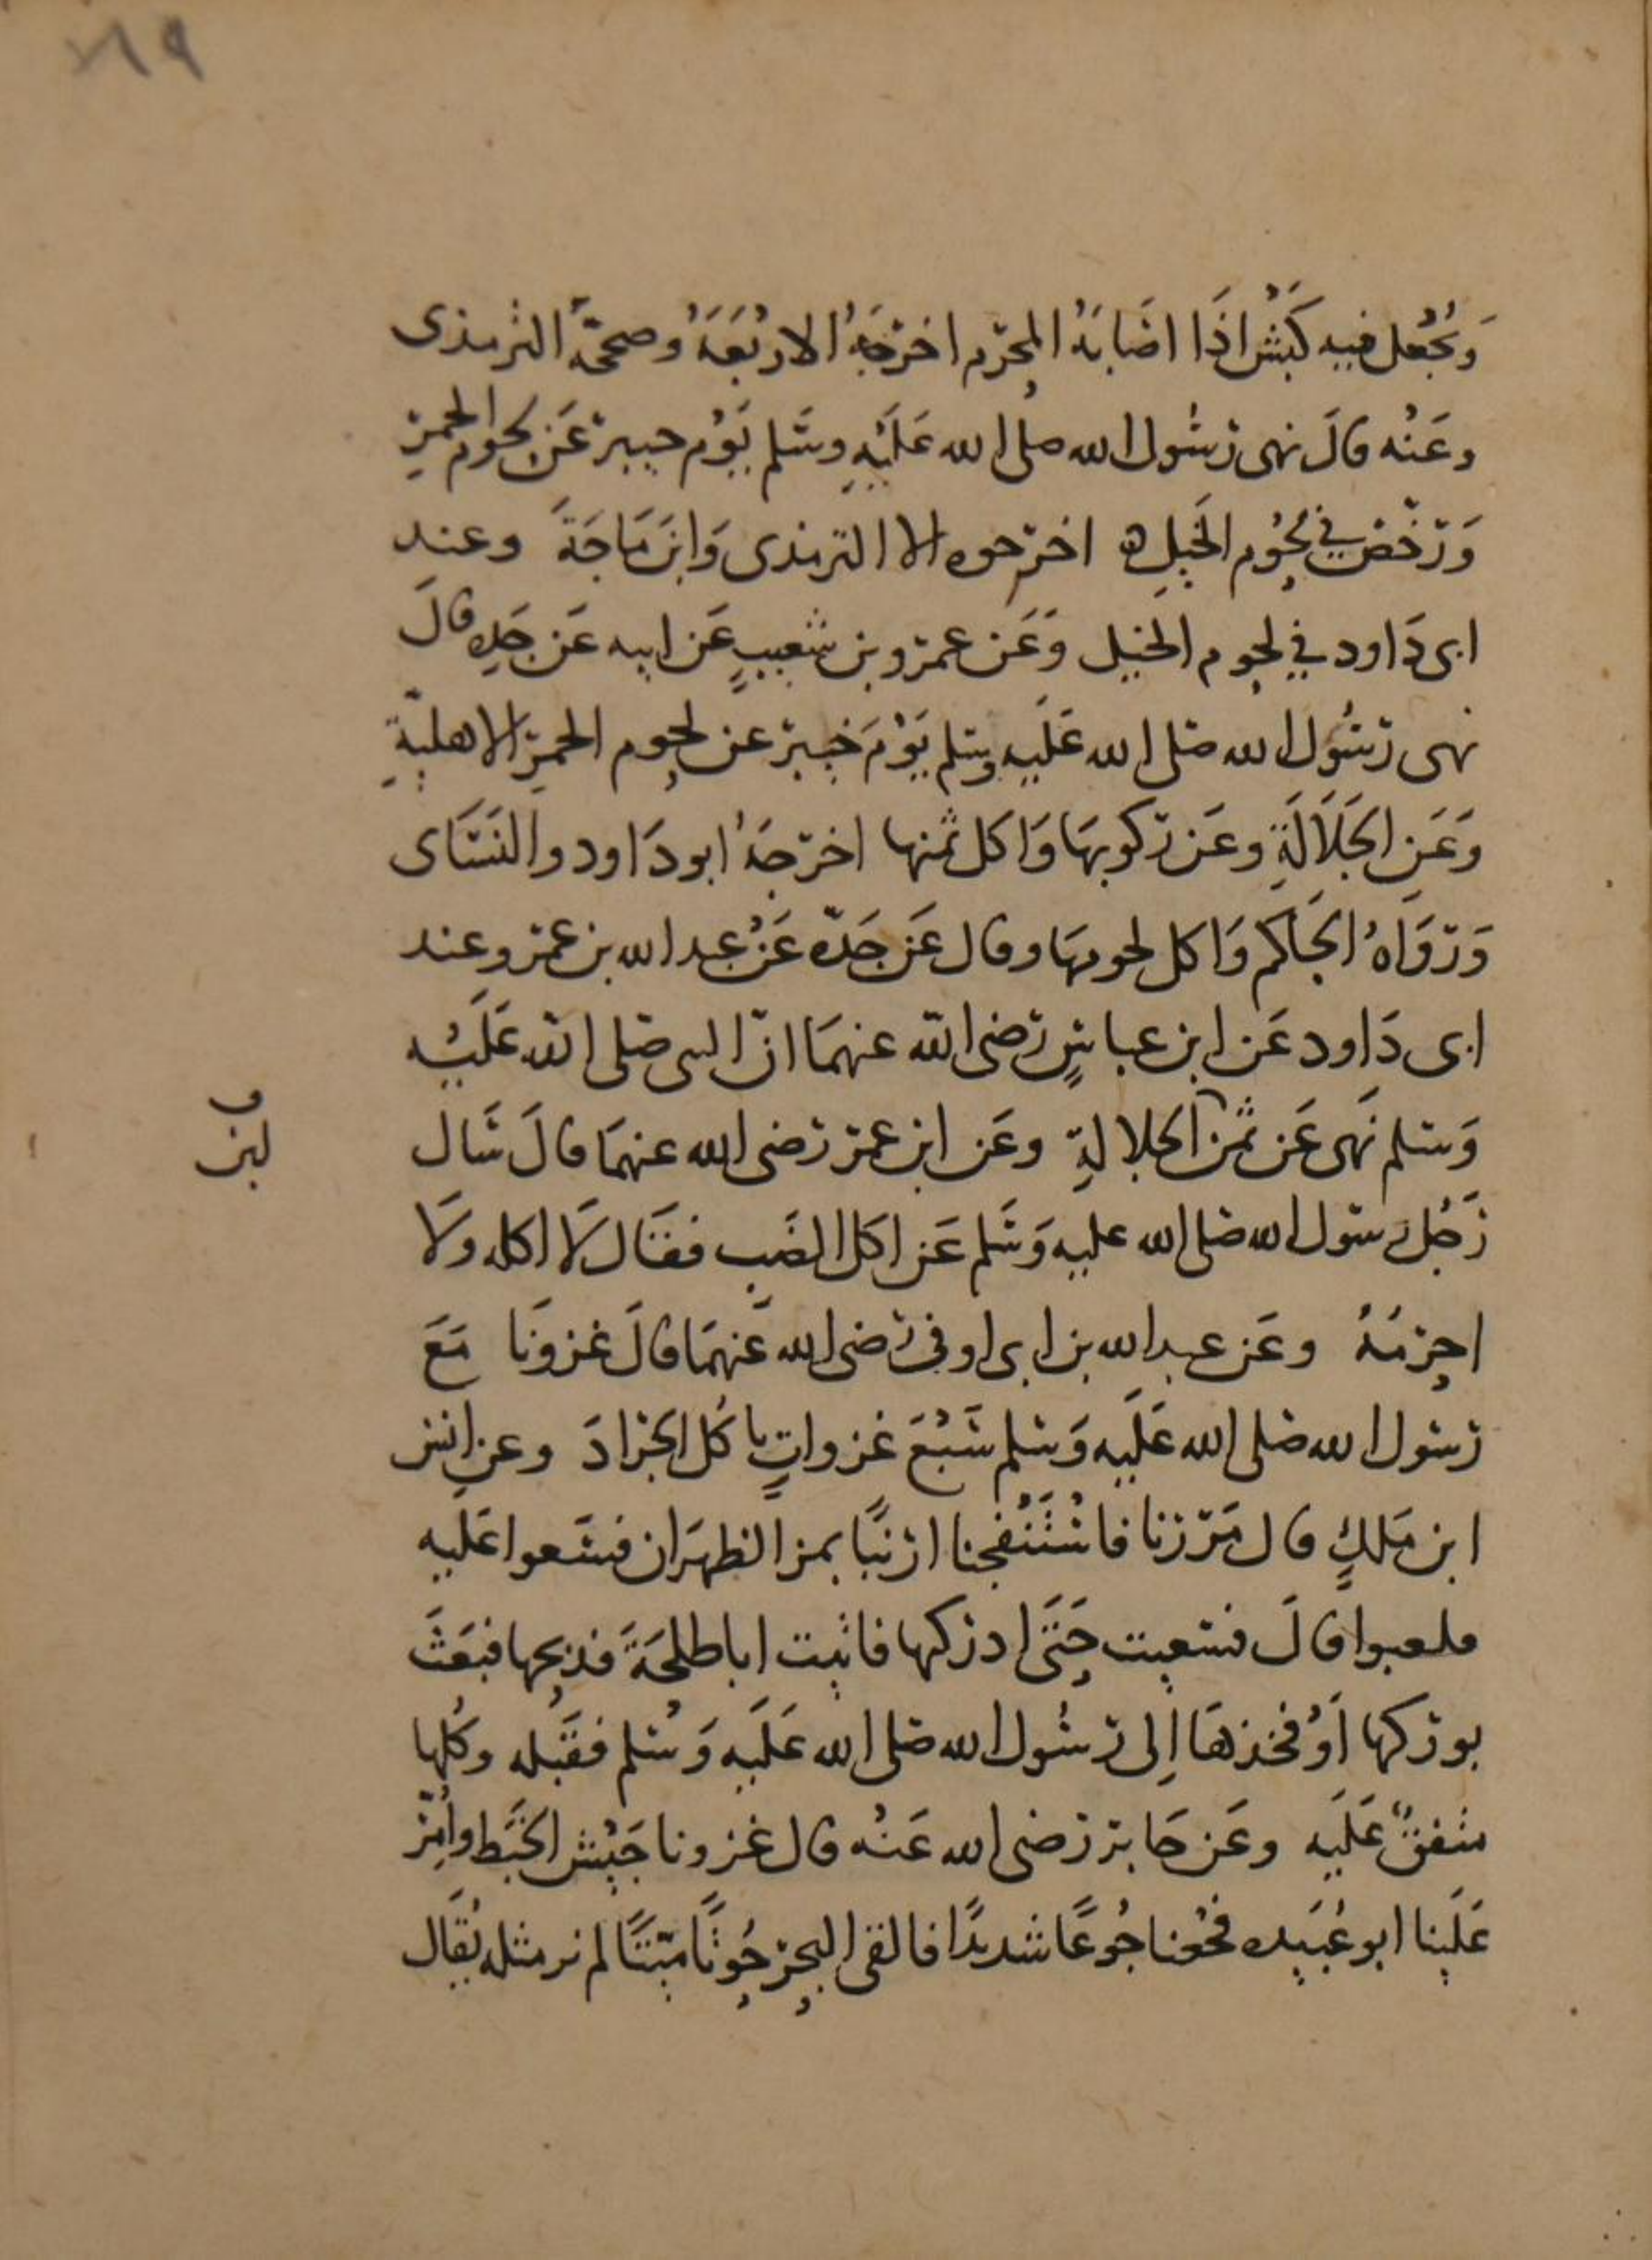 ٧٨٩
وَيُجْعل فيه كَبْشٌ اذَا اصَابَهُ المحرّم اخرَجَهُ الاربَعَة وصحّحَهُ الترمذى
وعَنْه قالَ نهى رسُول الله صلى الله عَلَيْهِ وسَلم يَوْم خيبر عَن لحوم الحمرِ
وَرَخّصَ في لحُوم الخَيلِ اخرجوه الا الترمذى وَابن مَاجَة وعند
ابى دَاود في لحوم الخيل وَعَن عمرو بن شعيبٍ عَن ابيه عَن جَدِه قالَ
نهى رسُول الله صَلى الله عَلَيه وسلم يَوْمَ خيبر عن لحوم الحمرِ الاهليّةِ
وَعَنِ الجَلَالَةِ وعَن ركوبهَا وَاكل ثمنها اخرجَهُ ابو دَاود والنسَاى
وَرَوَاهُ الحَاكم وَاكل لحومهَا وقال عَن جَدّه عَنْ عبد الله بن عمرو عند
ابى دَاود عَن ابن عباسٍ رَضى الله عنهمَا انّ النبى صَلى الله عَلَيْه
وَسَلم نَهى عَن ثمن الجلالةِ وعَن ابن عمر رَضى الله عنهمَا قالَ سَال
لبن
رَجُل رسول الله صَلى الله عليه وَسَلم عَن اكل الضب فقَال لَا اكله وَلَا
احرِمُهُ وعَن عبد الله بن ابى اوفى رَضى الله عَنهمَا قالَ غزونَا مَعَ
رسُول الله صَلى الله عَلَيه وَسَلم سَبْعَ غزواتٍ ياكُل الجَرادَ وعن انس
ابن مَلكٍ قال مَرَرنا فاسْتَنْفجنا ارنبًا بمر الظهرَان فسَعوا عَليه
فلغبوا قالَ فسَعيت حَتَى ادركها فاتيت ابا طلحَةَ فذبحها فبَعَثَ
بوركها اَوْ فخذهَا اِلى رسُول الله صَلى الله عَلَيه وَسَلم فقَبله وكُلها
متفقٌ عَلَيه وعَن جَابر رضى الله عَنْه قال غزونا جَيْش الخَبَط وأُمِّرَ
عَلَينا ابو عُبَيده فجُعْنا جُوعًا شديدًا فالقى البحر حُوتًا مَيّتًا لم نر مثله يُقَال